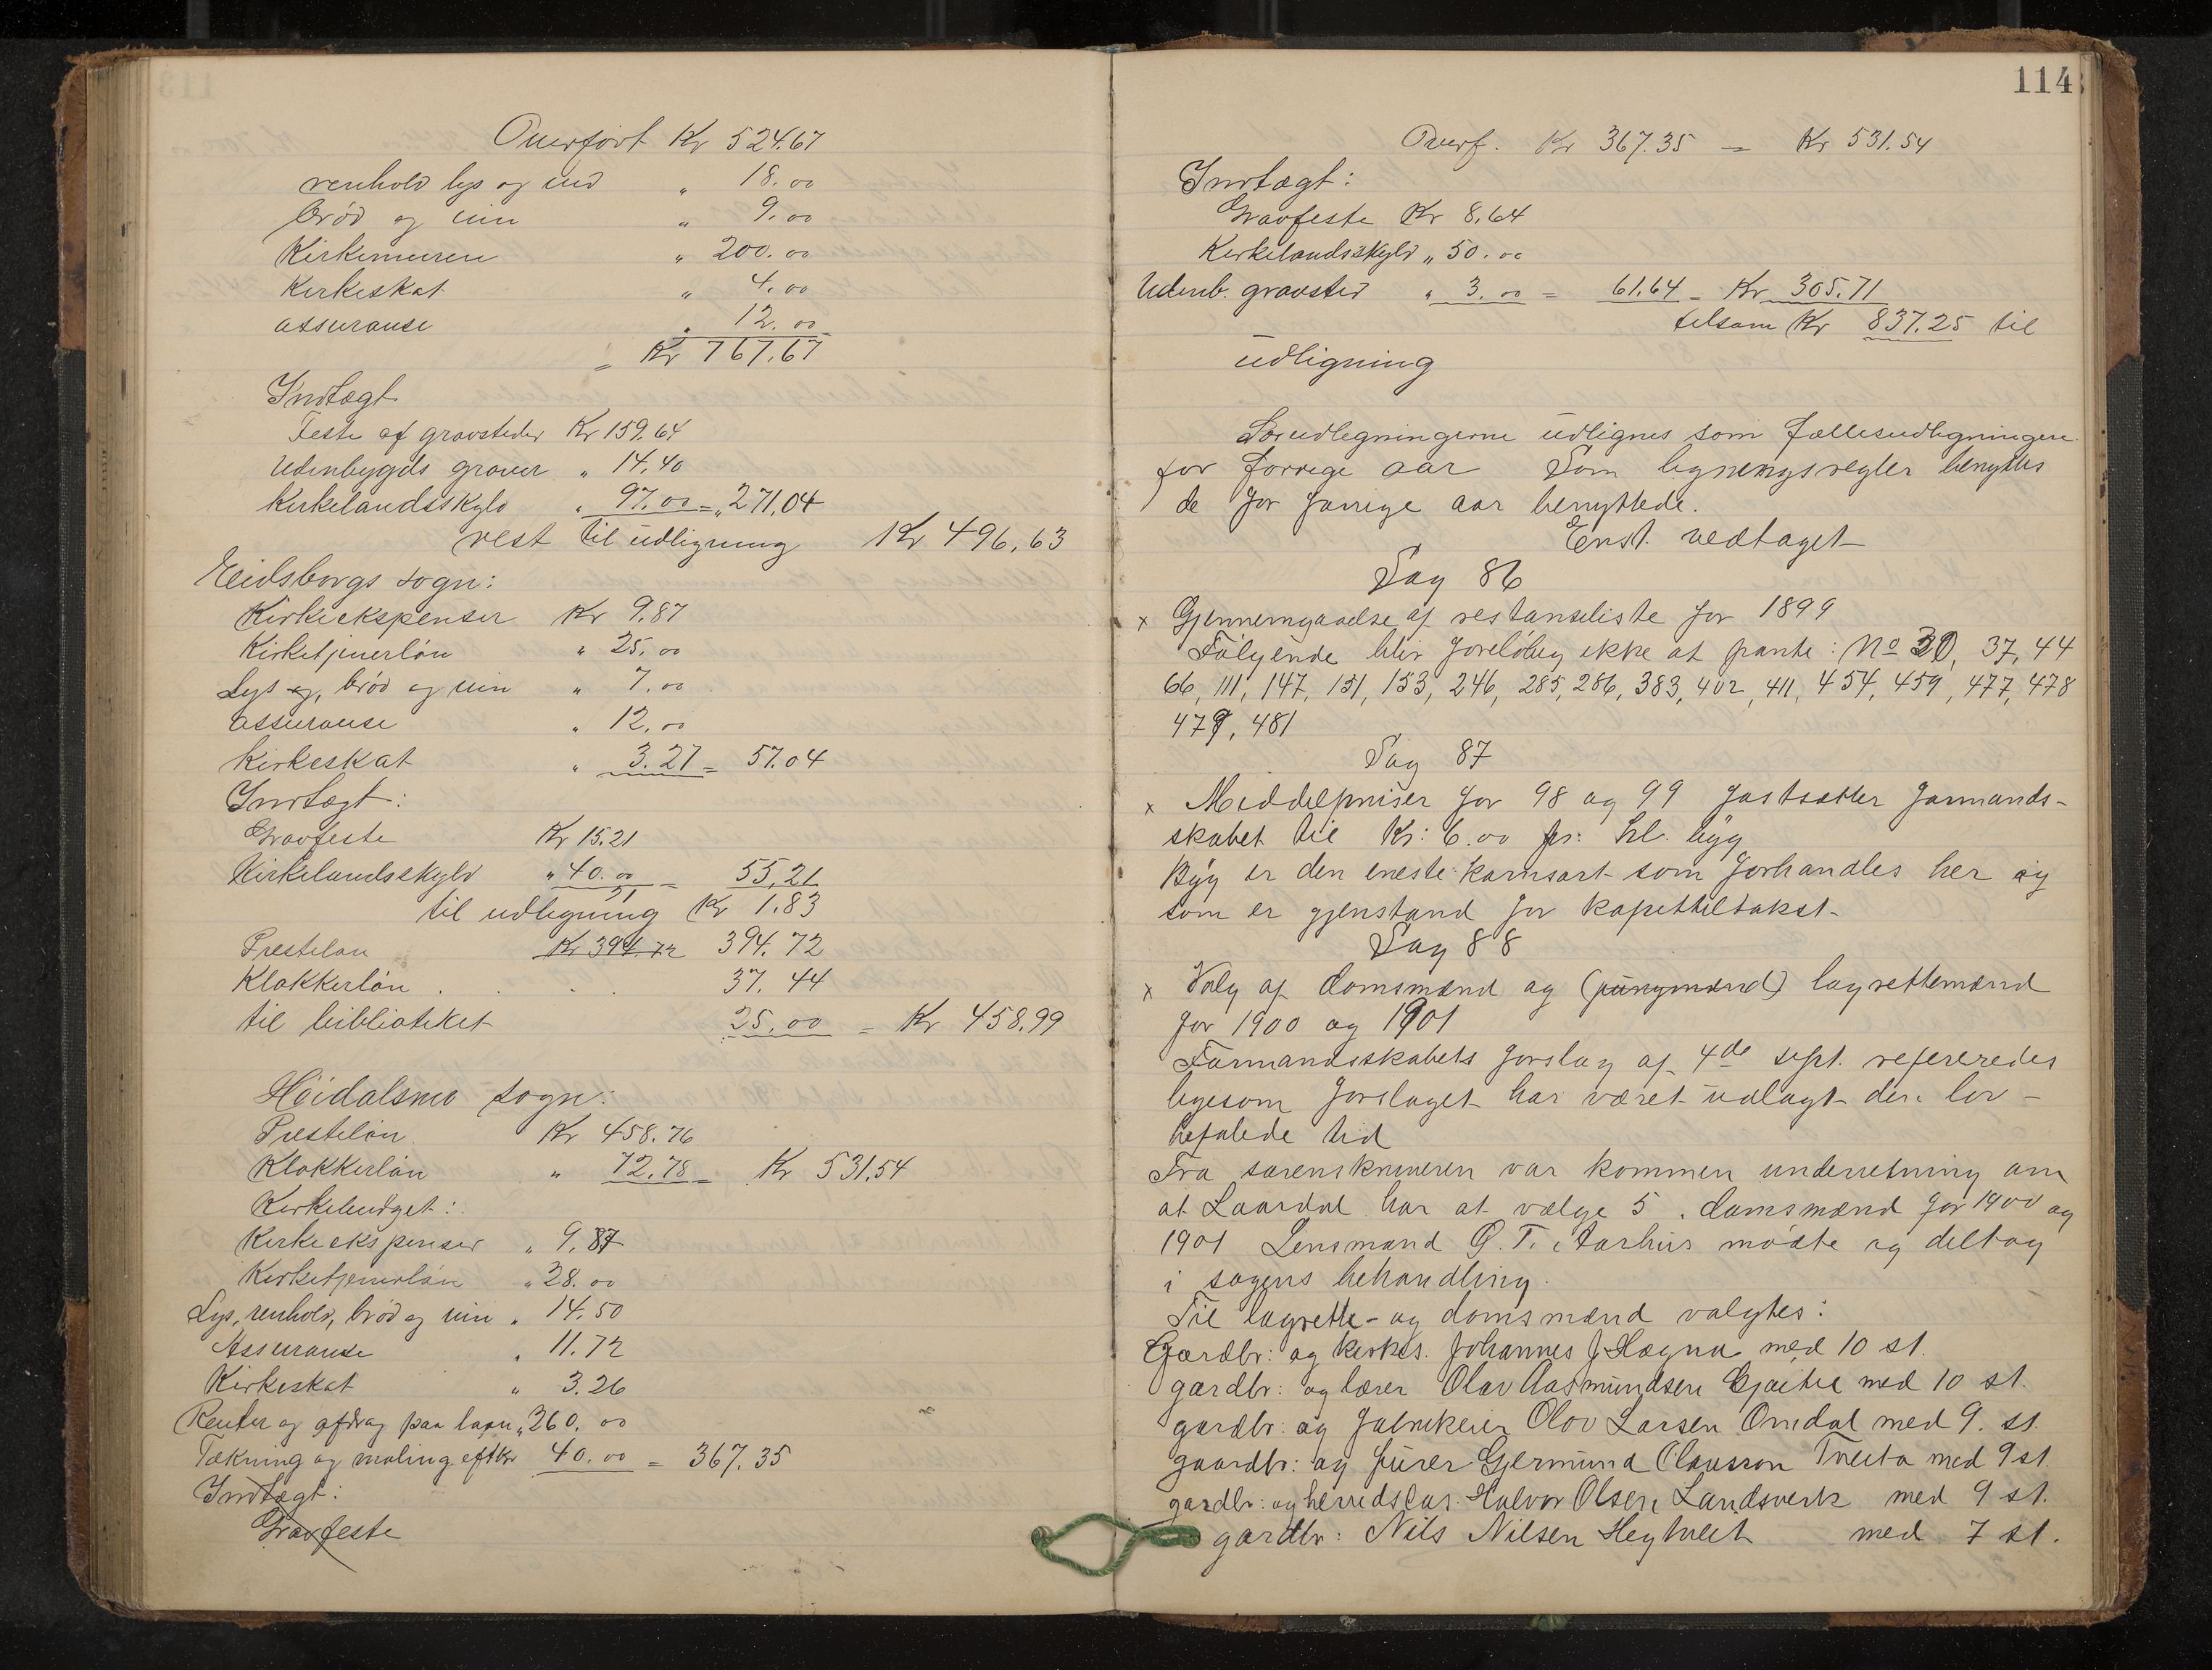 Overført Kr 524.67
renhold lys og ved " 18.00
brød og vin " 9.00
Kirkemuren " 200.00
Kirkeskat " 4.00
assuranse " 12.00
= Kr 767.67
Indtægt
Feste af gravsteder Kr 159.64
Udenbygds graver " 14.40
Kirkelandsskyld " 97.00 = " 271,04
rest til udligning Kr 496,63
Eidsborgs sogn:
Kirkeekspenser Kr 9.87
Kirketjenerløn " 25.00
Lys og, brød og vin " 7.00
assuranse " 12.00
Kirkeskat " 3.27 = 57.04
Indtægt:
Gravfeste Kr 15.21
Kirkelandsskyld " 40.00 = 55,21
til udligning Kr 1.83
Presteløn Kr 394.72 394.72
Klokkerløn . . . 37.44
til biblioteket 25.00 = Kr 458.99
Høidalsmo sogn:
Presteløn Kr 458.76
Klokkerløn " 72.78 = Kr 531.54
Kirkebudget:
Kirkeekspenser " 9.87
Kirketjenerløn " 28.00
Lys, renhold, brød og vin " 14.50
Assuranse " 11.72
Kirkeskat " 3.26
Renter og afdrag paa laan " 260.00
Tækning og maling 40.00 = 367.35
Indtægt:
Gravfeste
114
Overf. Kr 367.35 = Kr 531.54
Indtægt:
Gravfeste Kr 8.64
Kirkelandsskyld " 50.00
Udenb. gravsted " 3.00 = 61.64 = Kr 305.71
tilsam Kr 837.25 til
udligning
Særudligningerne udlignes som fællesudligningen
for forrige aar Som ligningsregler benyttes
de for forrige aar benyttede.
Enst. vedtaget
Sag 86
x Gjennemgaaelse af restanseliste for 1899
Følgende blir foreløbig ikke at pante: No 30, 37, 44
66, 111, 147, 151, 153, 246, 285, 286, 383, 402, 411, 454, 459, 477, 478
479, 481
Sag 87
x Middelpriser for 98 og 99 fastsætter formands-
skabet til Kr: 6.00 pr: hl. byg
Byg er den eneste kornsort som forhandles her og
som er gjenstand for kapitteltakst.
Sag 88
x Valg af domsmænd og (jurymænd) lagrettemænd
for 1900 og 1901
Formandsskabets forslag af 4de sept. refereredes
ligesom forslaget har været udlagt den lov-
befalede tid
Fra sorenskriveren var kommen underretning om
at Laardal har at vælge 5 domsmænd for 1900 og
1901 Lensmand G. T. Aarhus mødte og deltog
i sagens behandling.
Til lagrette- og domsmænd valgtes:
Gardbr: og kirkes. Johannes J Hægna med 10 st.
gardbr: og lærer Olav Aasmundsen Gjøitil med 10 st.
gardbr: og fabrikeier Olov Larsen Omdal med 9. st.
gaardbr: og furer Gjermund Olavsson Tveito med 9 st.
gardbr: og herredskas. Halvor Olsen Landsverk med 9 st.
gardbr: Nils Nilsen Hegtveit med 7 st.